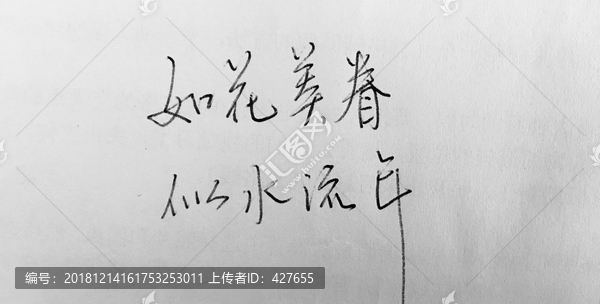 如花美眷
似水流年
汇图网
www.huitu.com
编号：20181214161753253011 上传者ID：427655